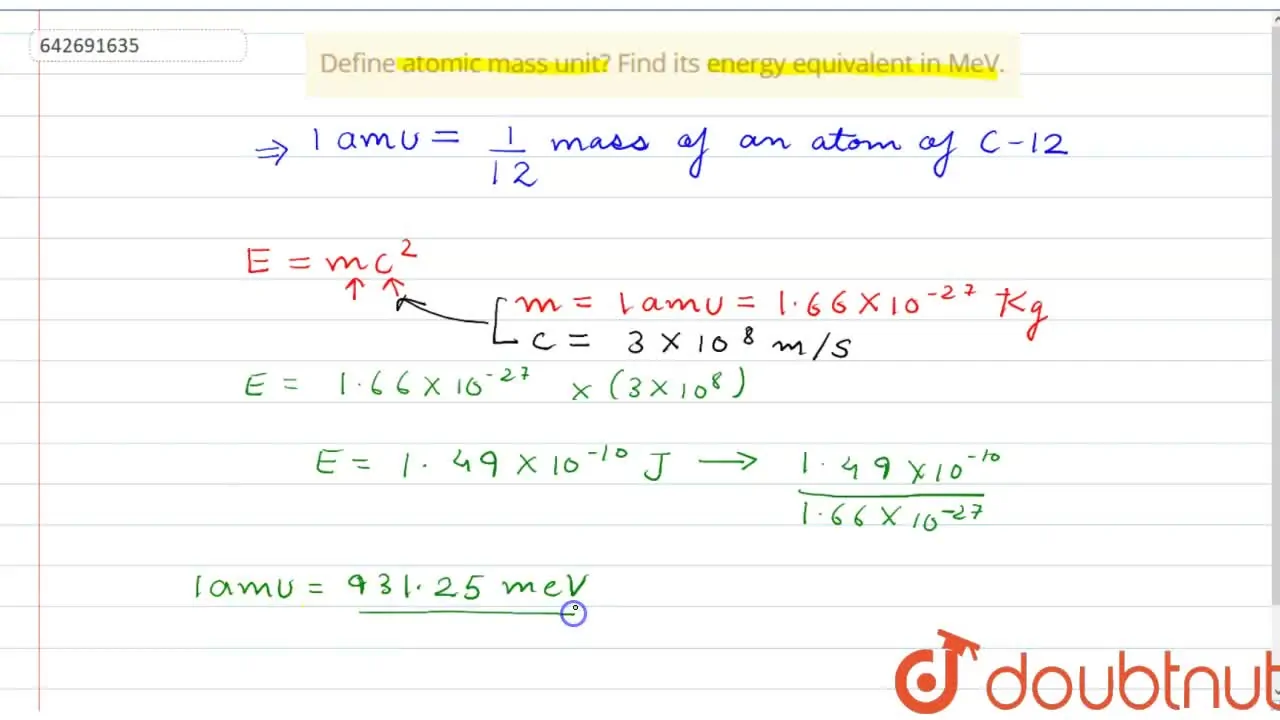 642691635
Define atomic mass unit? Find its energy equivalent in MeV.
⇒ 1 amu = 1/12 mass of an atom of C-12
E = mc²
m = 1 amu = 1.66 × 10⁻²⁷ Kg
c = 3 × 10⁸ m/s
E = 1.66 × 10⁻²⁷ × (3 × 10⁸)
E = 1.49 × 10⁻¹⁰ J → 1.49 × 10⁻¹⁰ / 1.66 × 10⁻²⁷
1 amu = 931.25 meV
doubtnut